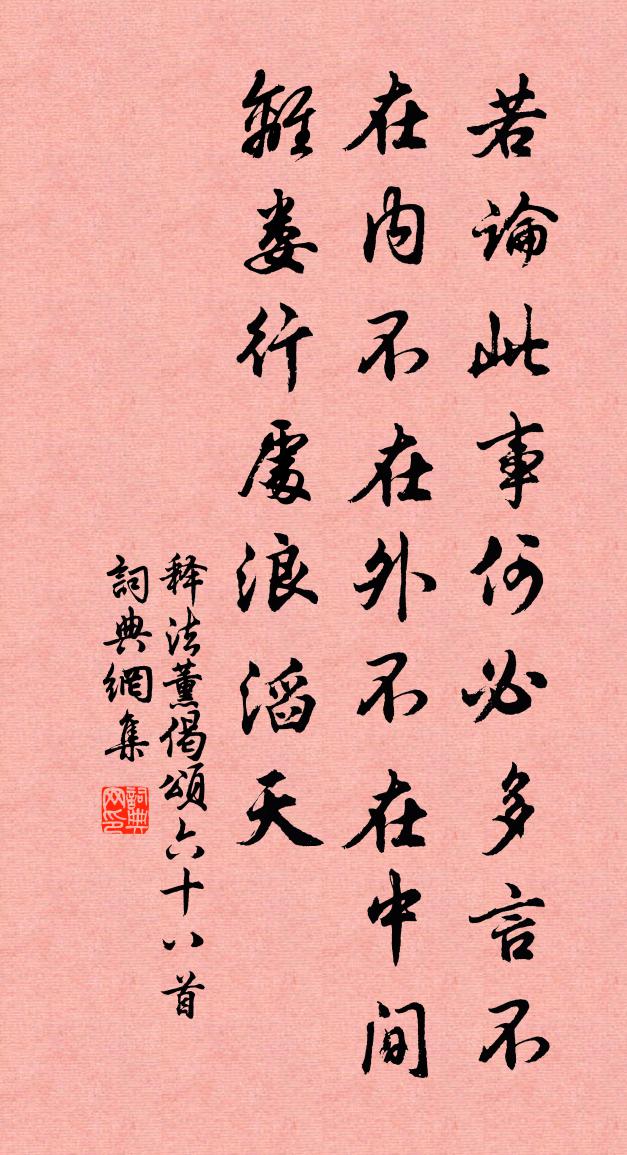 若論此事何必多言不
在内不在外不在中間
離婁行處浪滔天
释法薰偈頌六十八首
詞典網集
詞典網印